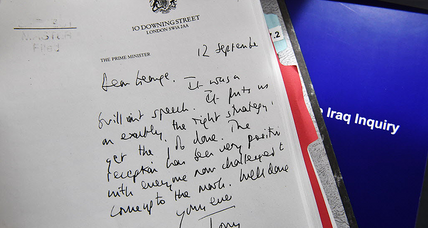 10 DOWNING STREET
LONDON SW1A 2AA
THE PRIME MINISTER
12 September
Dear George,
It was a
brilliant speech. It puts us
on exactly the right strategy,
get the job done. The
reception has been very positive
with everyone now challenged to
come up to the mark. Well done
yours ever
Tony
.2
Iraq Inquiry